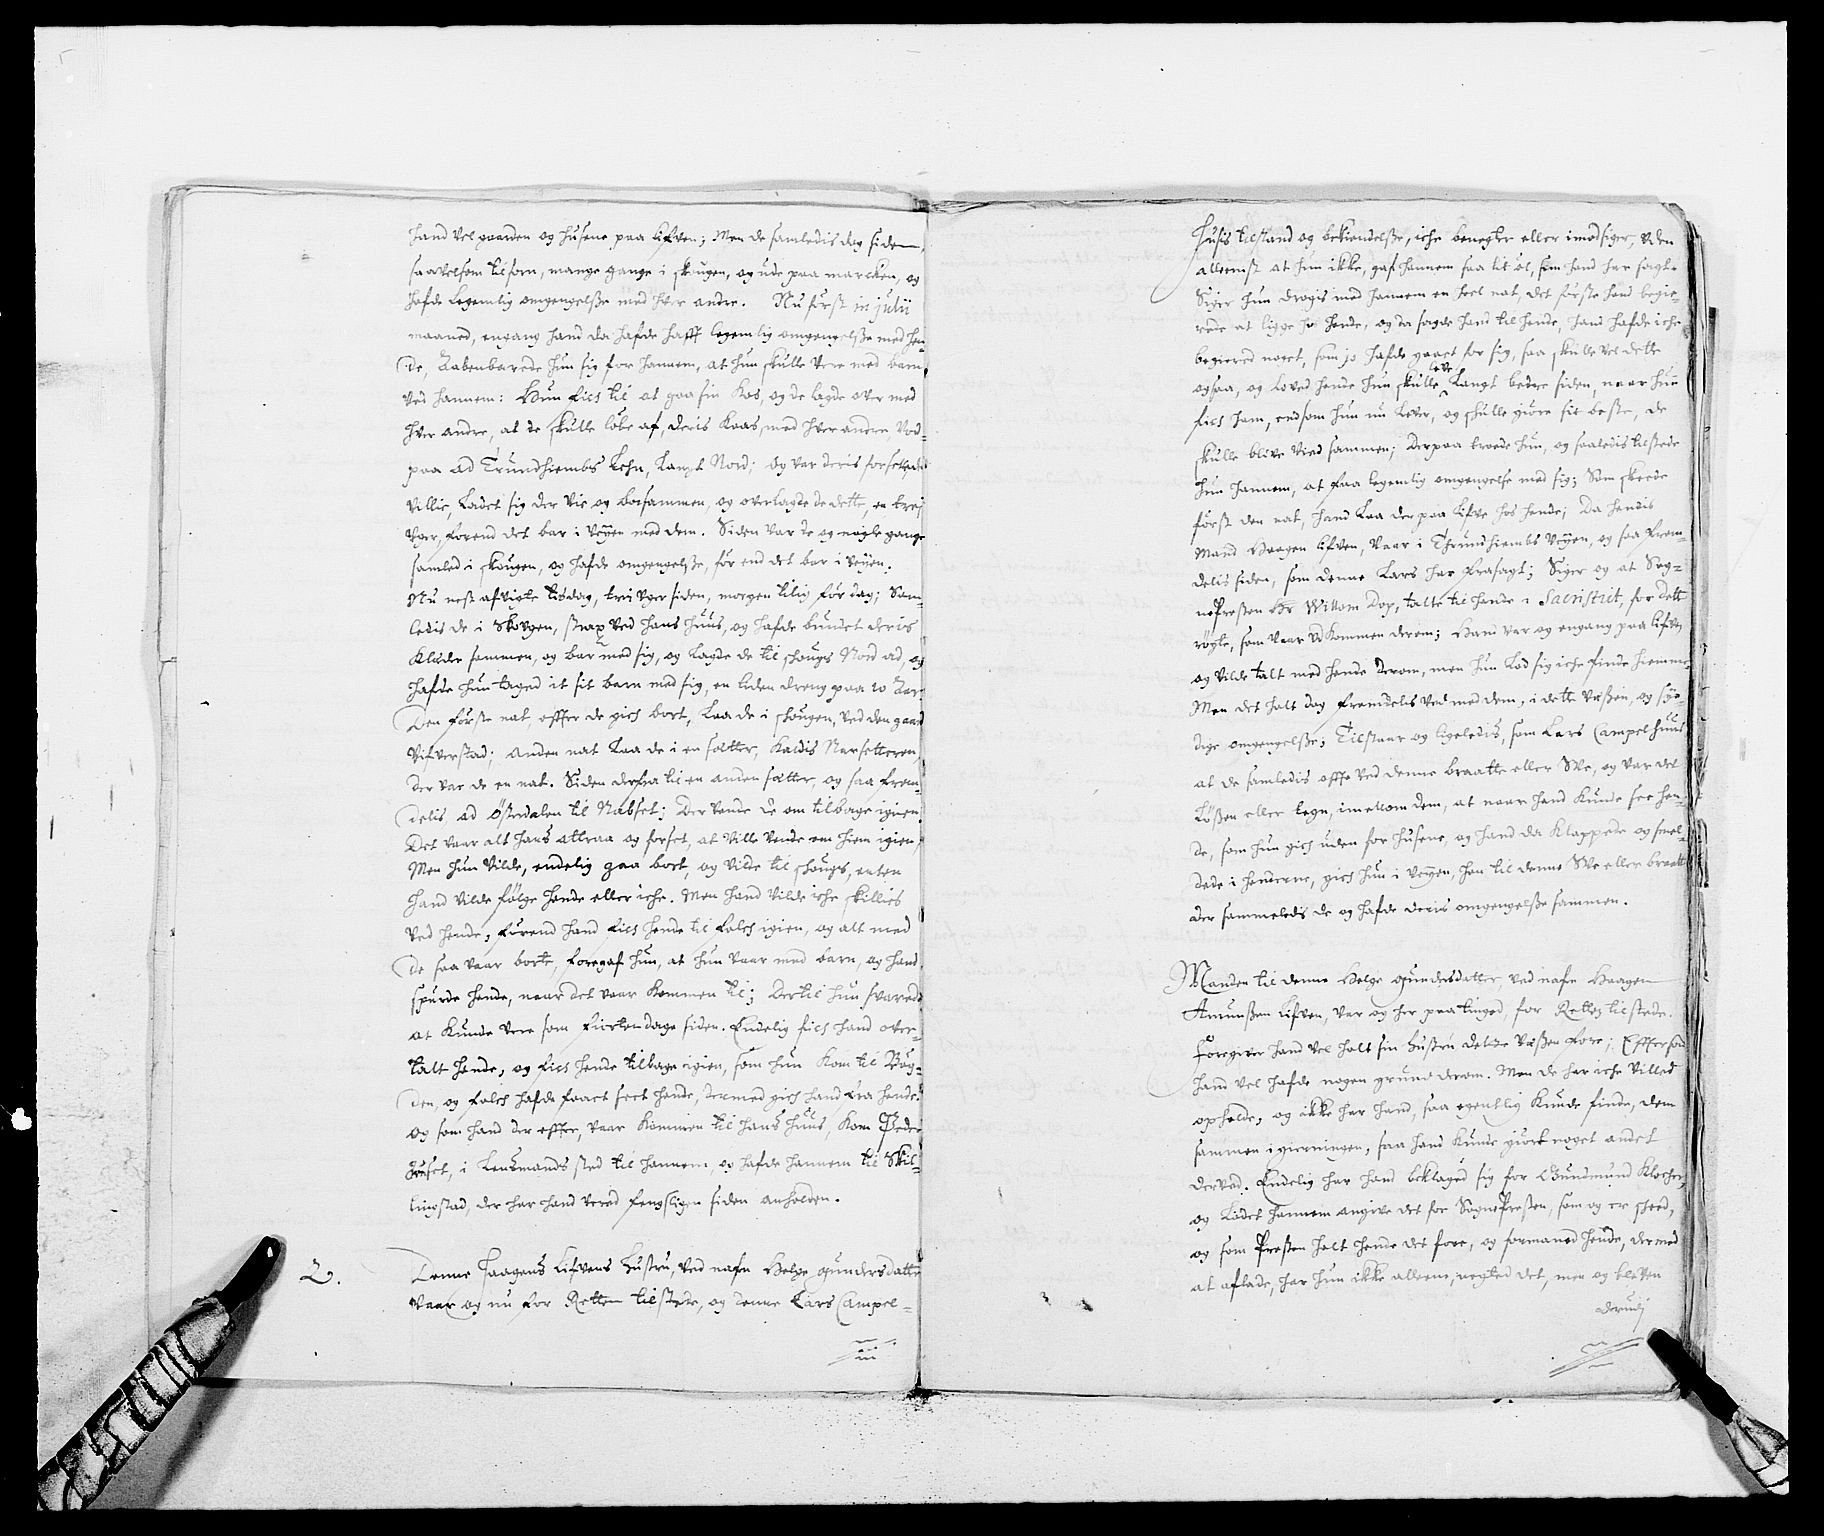 hand vel gaarden og husene paa Lifven; Men de samledis dog siden,
saavelsom tilforn, mange gange i skougen, og ude paa marcken, og
hafde Legemlig omgengelsse med hver andre. Nu først in julij
maaned, engang hand da hafde hafft legemlig omgengelsse med hen-
de, Aabenbarede hun sig for hannem, at hun skulle vere med barn
ved hannem: Hun fics til at gaa sin Kos, og de lagde over med
hver andre, at de skulle løbe af, deris Kaas, med hver andre, Nord-
paa ad Trundhiembs Lehn, Langt Nord; og var deris forsett, og
Villie, Ladet sig der vie og boe sammen, og overlagde de dette, en trej
Uger, forend det bar i Veyen med dem. Siden var de og nogle gange
samled i skougen, og hafde omgengelsse, før end det bar i veyen.
Nu nest afvigte tisdag, tri Uger siden, morgen tilig før dag; Sam-
ledis de i Skovgen, strax ved hans huus, og hafde bundet deris
Klæder sammen, og bar med sig, og lagde de til skougs Nord ad, og
hafde hun taged it sit barn med sig, en liden dreng paa 10 Aar.
Den første nat, effter de gich bort, Laa de i skougen, ved den gaard
Vifverstad; anden nat Laa de i en sætter, Kaldis Narsetteren,
der var de en nat. Siden derfra til en anden sætter, og saa frem-
delis ad Østerdalen til Nabset; Der vende de om tilbage igien.
Det vaar alt hans attraa og forset, at ville vende om hiem igien,
Men hun vilde, endelig gaa bort, og vilde til skougs, enten
hand vilde følge hende eller iche. Men hand vilde iche skillies
ved hende, førend hand fics hende til folch igien, og alt med
de saa vaar borte, foregaf hun, at hun vaar med barn, og hand
spurde hende, naar det vaar Kommen til; Dertil hun svarede
at Kunde vere som fiorten dage siden. Endelig fics hand over-
talt hende, og fics hende tilbage igien, som hun Kom til Byg-
den, og folch hafde faaet seet hende, dermed gich hand fra hende.
Og som hand der effter, vaar Kommen til hans huus, Kom Peder
huset, i Lensmands sted til hannem, og hafde hannem til Skil-
lingstad, der har hand vered fengsligen siden anholden.
2.
Denne Haagens Lifvens Hustru, ved nafn Helge gundersdatter
Vaar og nu for Retten tilstede, og denne Lars Campel-
Husis tilstand og bekiendelsse, iche benegter eller imodsiger, Uden
alleenist at hun ikke, gaf hannem saa lit øl, som hand har sagt.
Siger hun drogis med hannem en heel nat, det første hand begie-
rede at ligge hos hende, og da sagde hand til hende, hand hafde iche
begiered noget, som jo hafde gaaet for sig, saa skulle vel dette
ogsaa, og loved hende hun skulle leve Langt bedre siden, naar hun
fics ham, end som hun nu Lever, og skulle giøre sit beste, de
skulle blive Vied sammen; Derpaa troede hun, og saaledis tilstede
hun hannem, at faa legemlig omgengelse med sig; Som skeede
først den nat, hand Laa der paa Lifve hos hende; Da hendis
Mand Haagen Lifven, vaar i Thrundhiembs Veyen, og saa frem-
delis siden, som denne Lars har frasagt; Siger og at Sog-
nePresten Hr Willom Dop, talte til hende i Sacristiet, for dett
røgte, som vaar udKommen derom; Hand var og engang paa Lifven
og vilde talt med hende derom, men hun Lod sig iche finde hiemme.
Men det halt dog fremdelis ved med dem, i dette vessen, og syn-
dige omgengelsse; Tilstaar og ligeledis, som Lars Campelhuus
at de samledis offte ved denne braatte eller Swe, og var det
Løssen eller tegn, imellom dem, at naar hand Kunde see hen-
de, som hun gich uden for husene, og hand da Klappede og smel-
dede i henderne, gich hun i veyen, hen til denne Swe eller braatt
der sammeledis de og hafde deris omgengelsse sammen.
Manden til denne Helge gundersdatter, ved nafn Haagen
Amundssen Lifven, var og her paa tinged, for Retten tilstede.
Foregiver hand vel halt sin hustru dette vessen fore; Effter som
hand vel hafde nogen grund derom. Men de har iche villed
opholde, og ikke har hand, saa egentlig Kunde finde, dem
sammen i gierningen, saa hand Kunde giort noget andet
derved. Endelig har hand beklaged sig for Gundmund Klocher,
og Ladet hannem angive det for SognePresten, som og er skeed,
og som Presten holt hende det fore, og formaned hende, dermed
at aflade, har hun ikke alleene, negted det, men og bleven
derudj